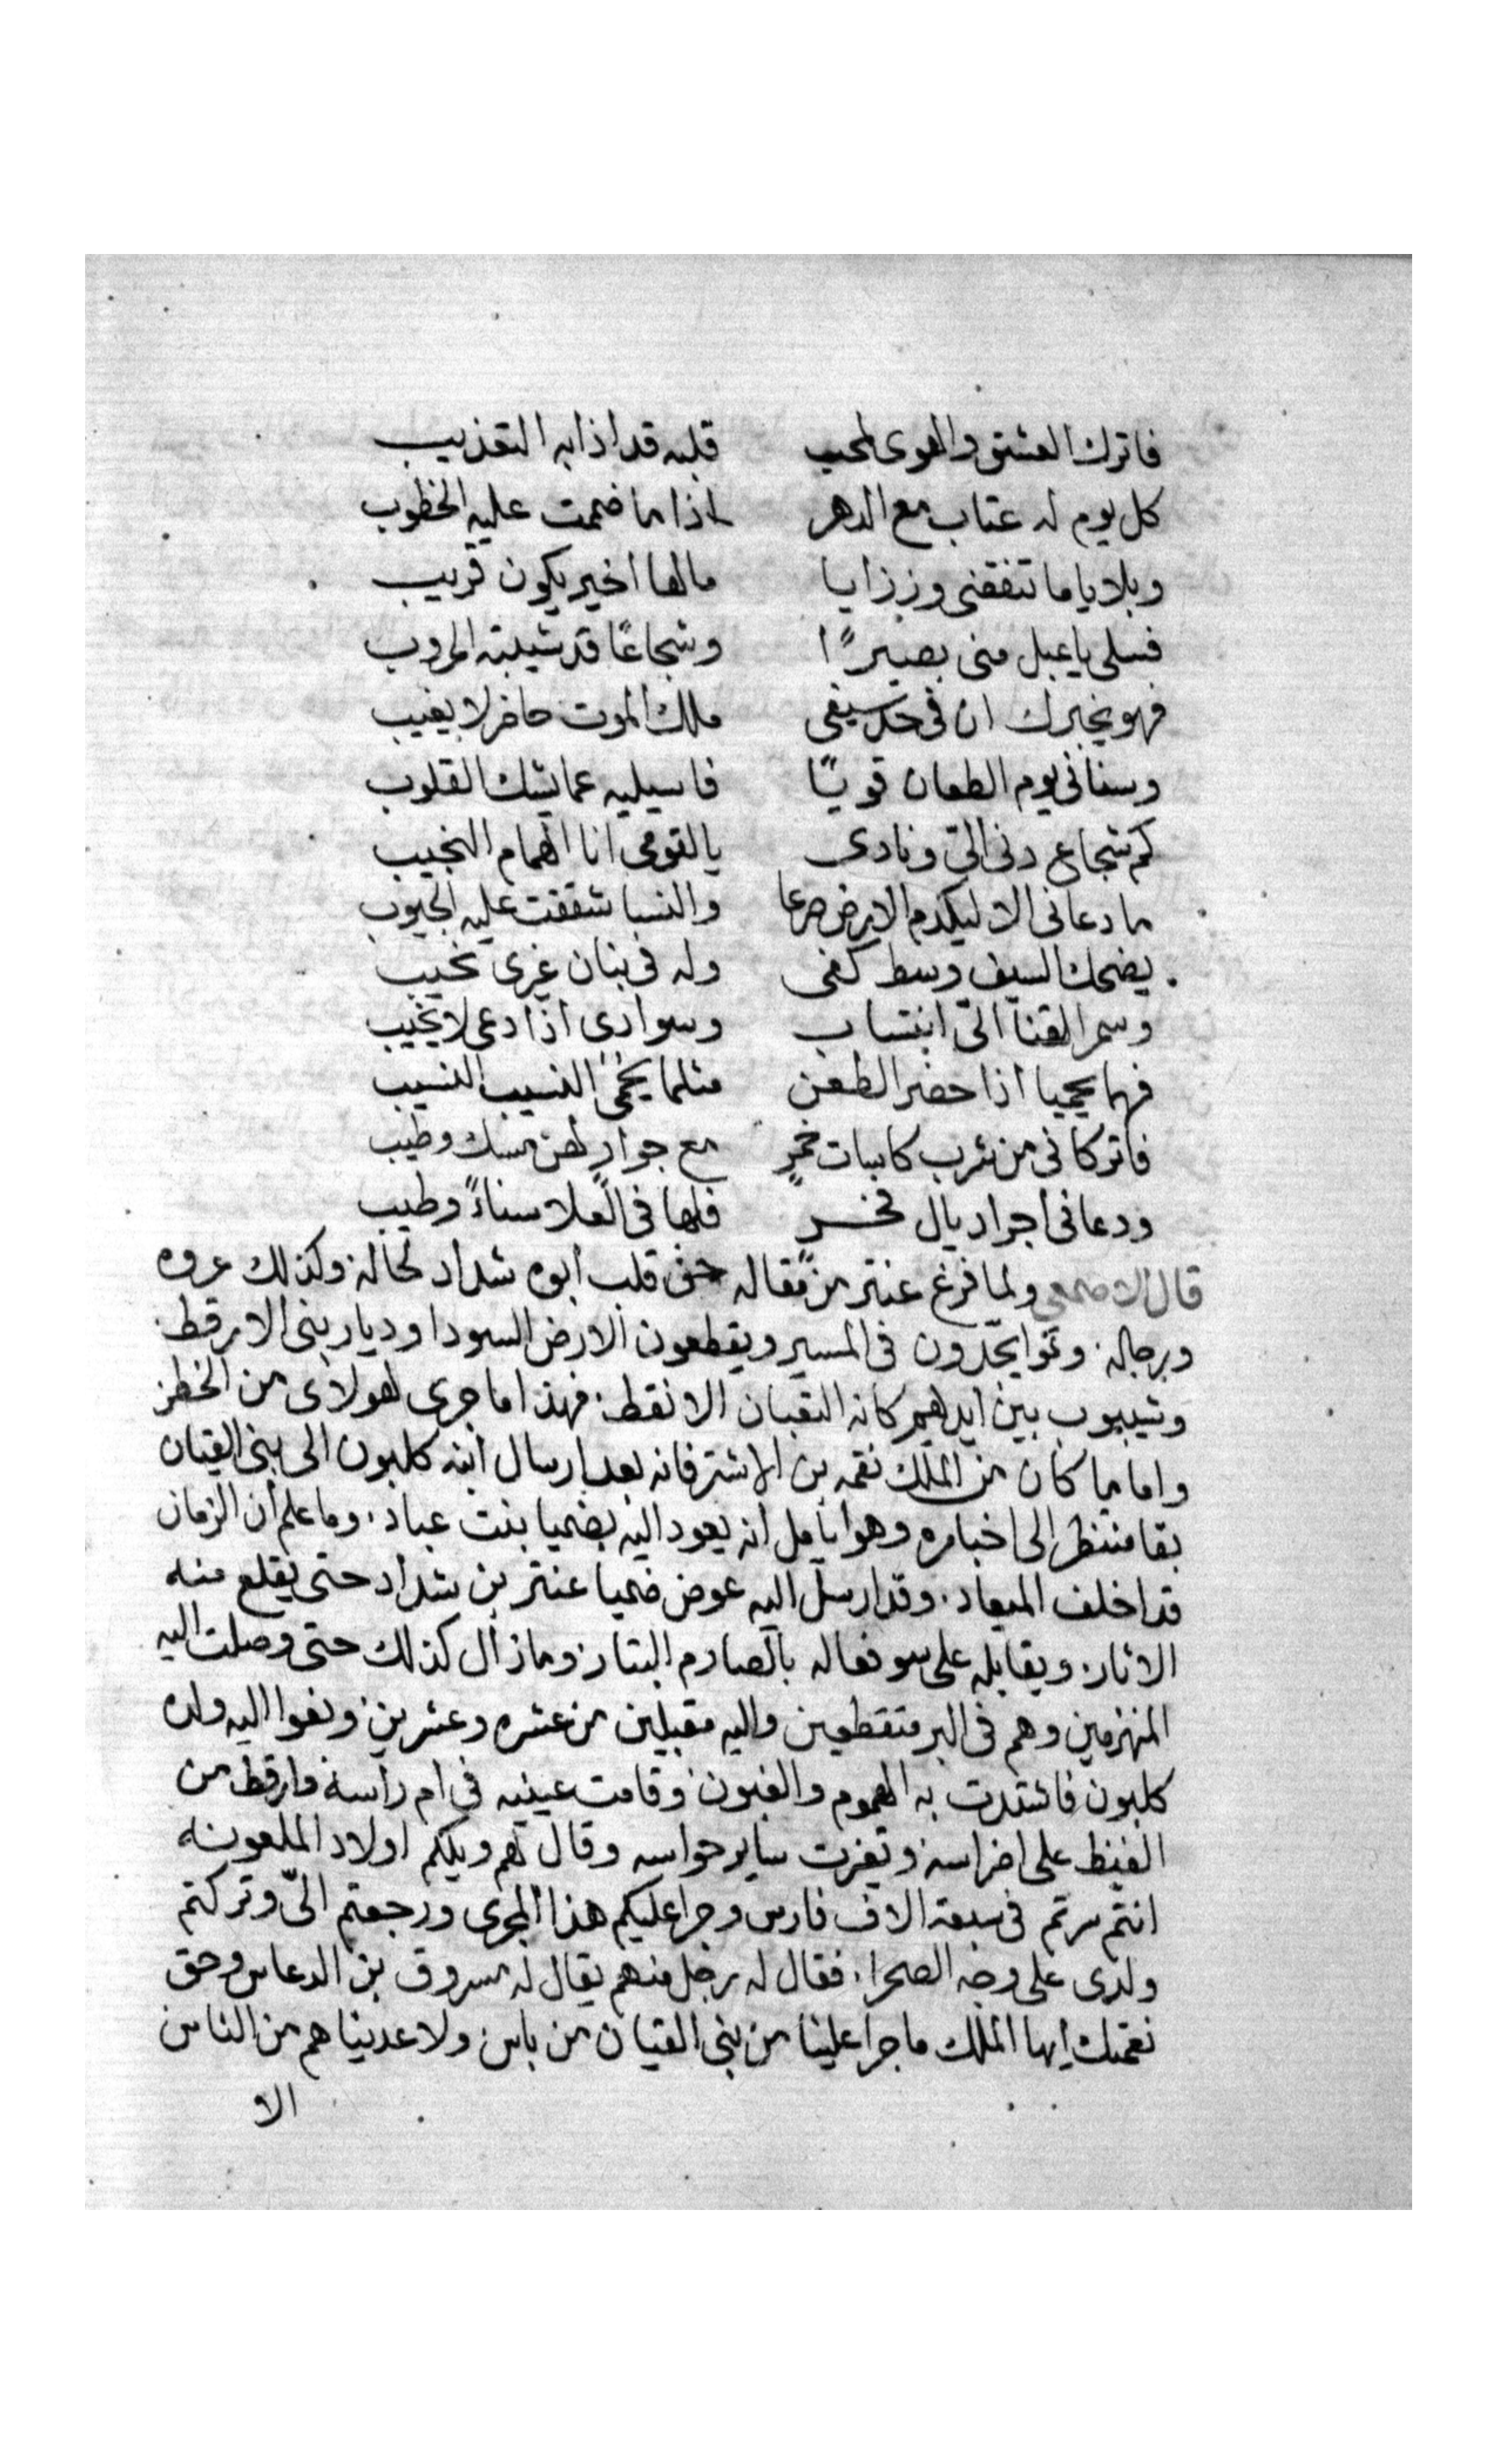 فاترك العشق والهوى لمحب قلبه قد اذابه التعذيب
كل يوم له عتاب مع الدهر اذا ما ضمت عليه الخطوب
وبلايا ما تنفقنى ورزايا مالها اخير يكون قريب
فسلى يا عبل منى بصيرًا وشجاعًا قد شيبته الحروب
فهو يخبرك ان فى حد سيفى ملك الموت حاضر لا يغيب
وسنانى يوم الطعان قويًا فاسيليه عما يشك القلوب
كم شجاع دنى الىّ ونادى يا لقومى انا الهمام النجيب
ما دعانى الا ليكدم الارض صرعا والنسا شققت عليه الجيوب
يضحك السيف وسط كفى وله فى بنان غيرى نحيب
وسمر القنا الىّ انتساب وسوادى اذا دعى لا يخيب
فهما يحميا اذا حضر الطعن مثلما يحمى النسيب النسيب
فاتركانى من شرب كاسات خمرٍ مع جوارٍ لهن مسك وطيب
ودعانى اجر اديال فخر فلها فى العلا سناءً وطيب
قال الاصمعى ولما فرغ عنتر من مقاله حن قلب ابوه شداد لحاله وكذلك عروه
ورجاله. وتموا يجدّون فى المسير ويقطعون الارض السودا وديار بنى الارقط.
وشيبوب بين ايديهم كانه الثعبان الانقط. فهذا ما جرى لهولاى من الخطر
واما ما كان من الملك نقمه بن الاشتر فانه بعد ارسال ابنه كلبون الى بنى القيان
بقا منتظر الى اخباره وهو ايامل انه يعود اليه بضميا بنت عباد. وما علم ان الزمان
قد اخلف الميعاد. وقد ارسل اليه عوض ضميا عنتر بن شداد حتى يقلع منه
الاثار. ويقابله على سو فعاله بالصارم البتار. وما زال كذلك حتى وصلت اليه
المنهزمين وهم فى البر متقطعين واليه مقبلين من عشره وعشرين. ونعوا اليه ولده
كلبون فاشتدت به الهموم والغبون. وقامت عينيه فى ام راسه وارقط من
الغيظ على اضراسه. وتغرت ساير حواسه وقال لهم ويلكم اولاد الملعونه
انتم سرتم فى سبعة الاف فارس وجرا عليكم هذا المجرى ورجعتم الىّ وتركتم
ولدى على وجه الصحرا. فقال له رجل منهم يقال له مسروق بن الدعاس وحق
نعمتك ايها الملك ما جرا علينا من بنى القيان من باس ولا عديناهم من الناس
الا